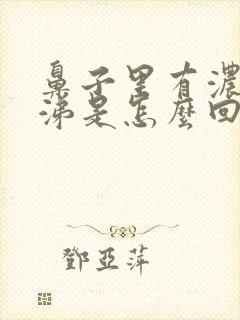 鼻子里有濃
涕是怎麼回
鄧亞萍